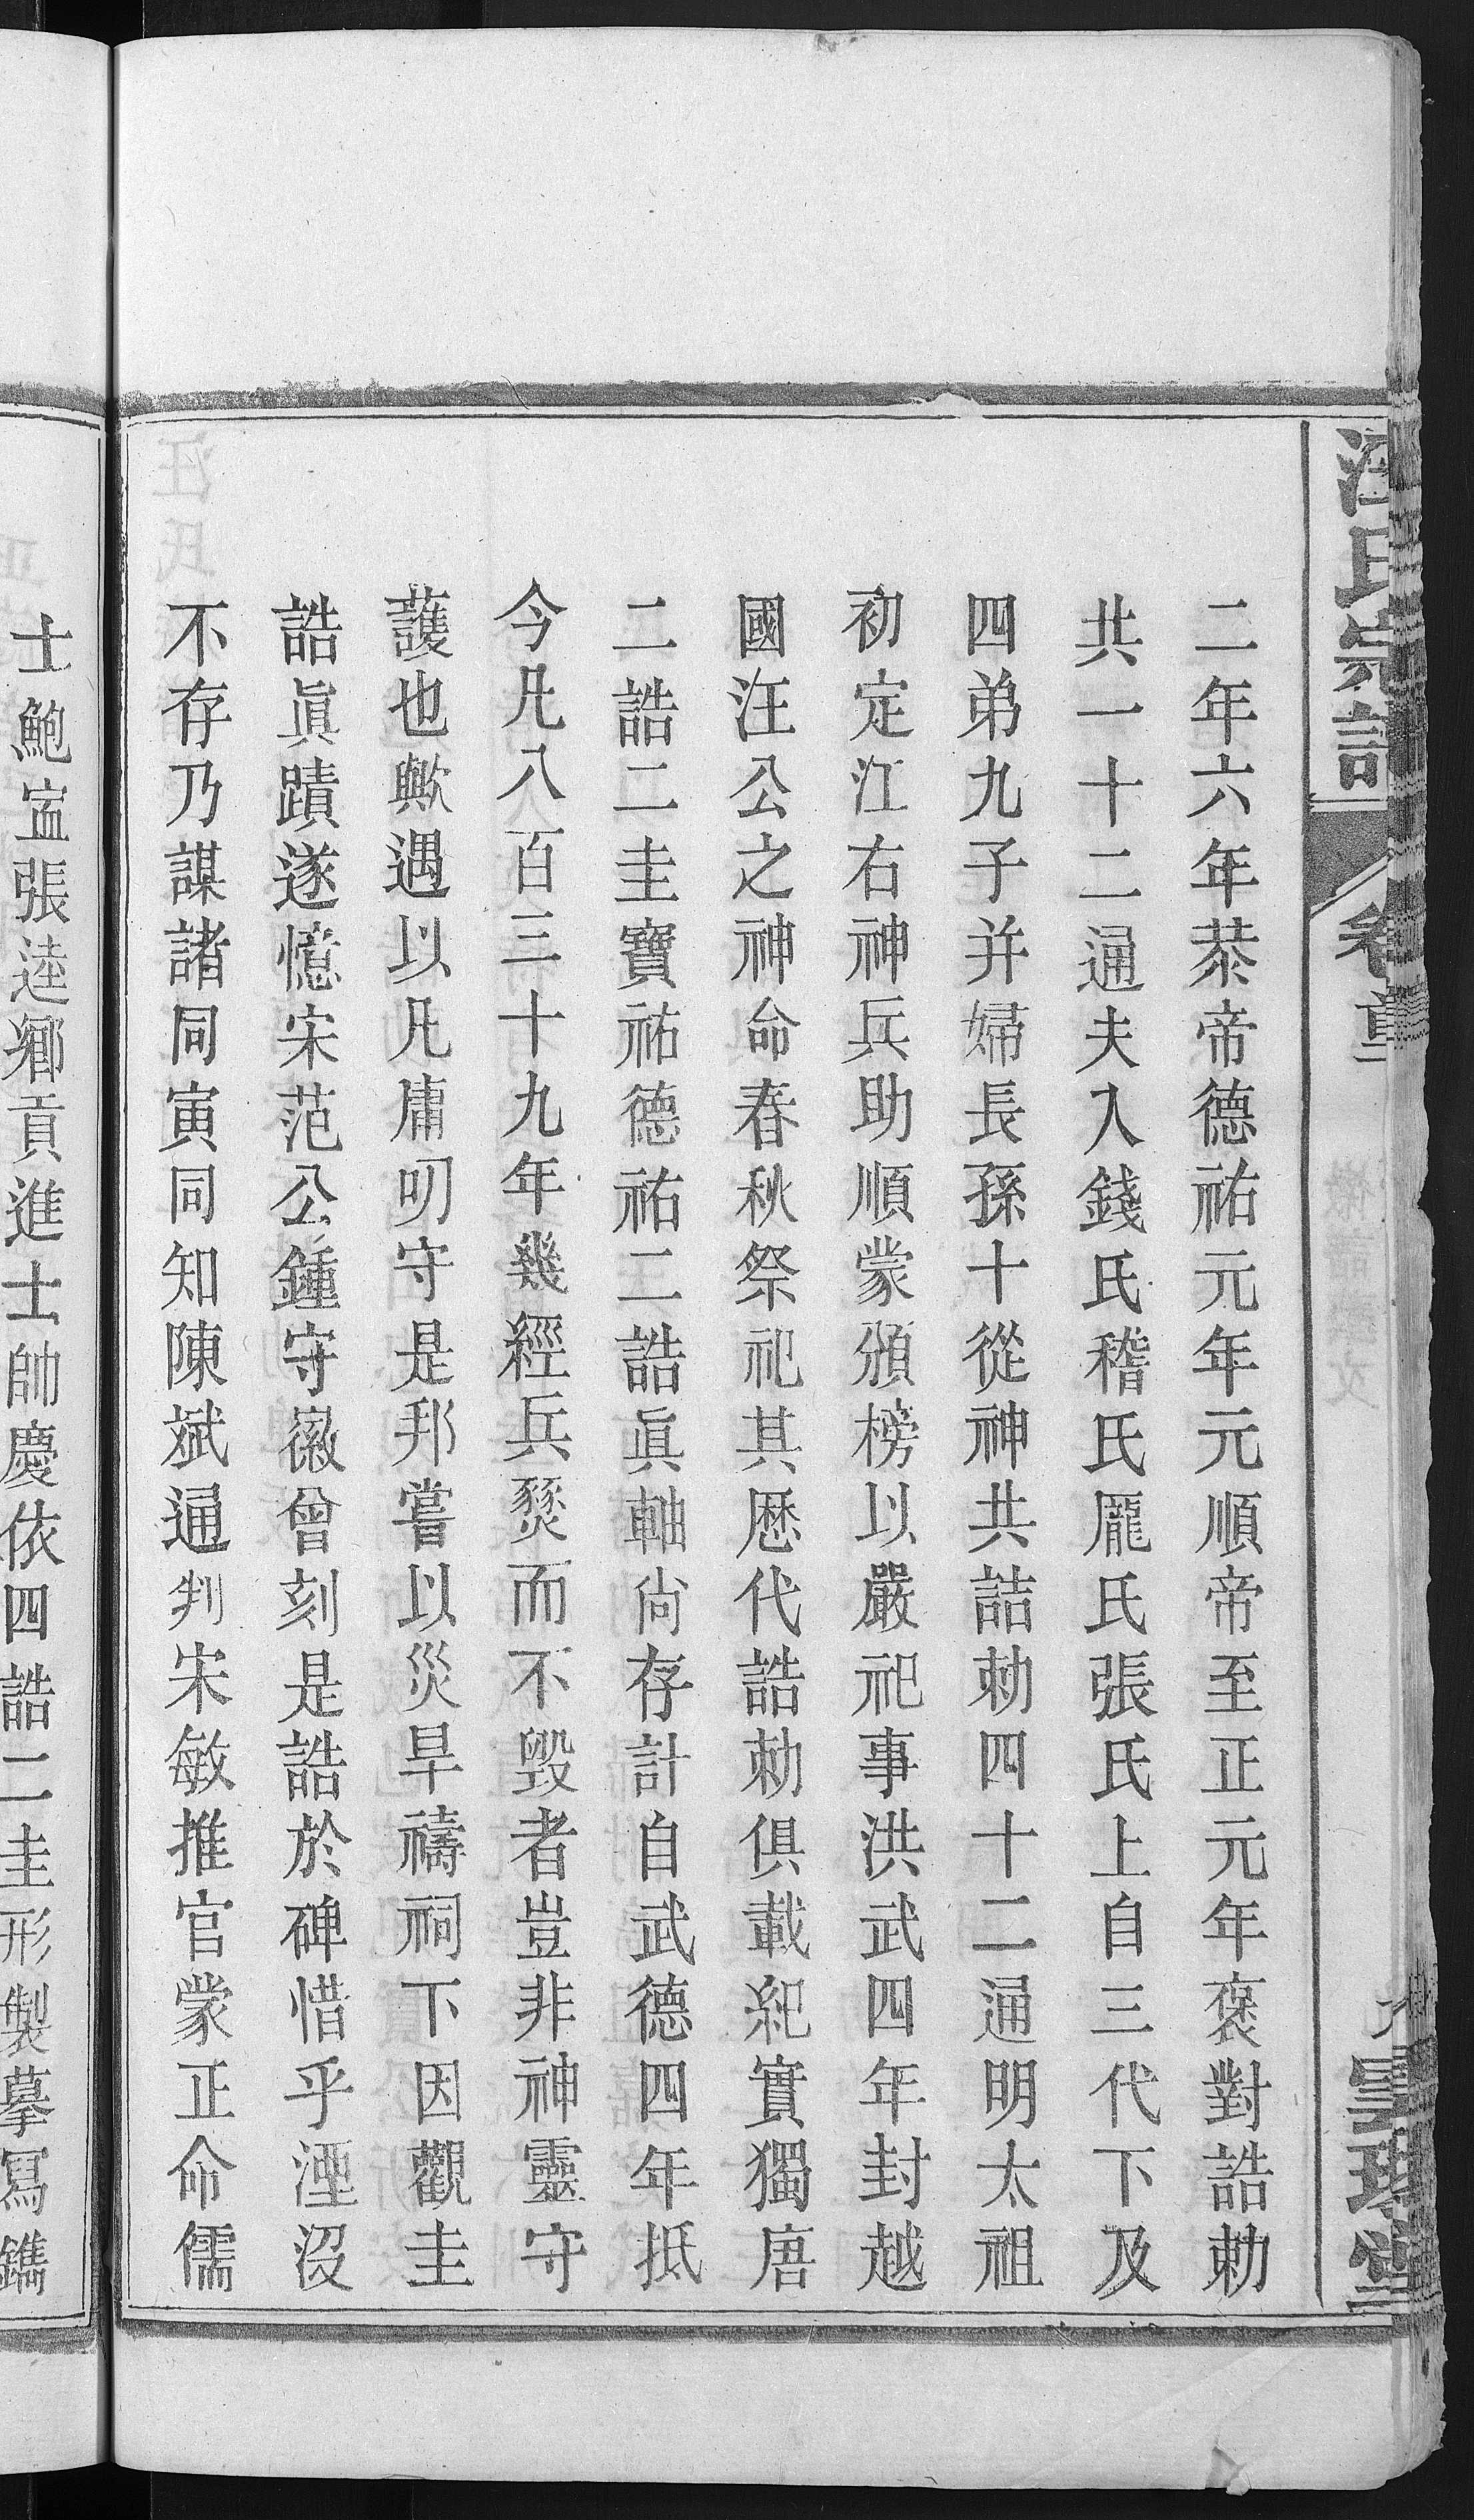 汪氏宗譜
卷首
二年六年恭帝德祐元年元順帝至正元年褒對誥勅
共一十二通夫人錢氏稽氏龎氏張氏上自三代下及
四弟九子并婦長孫十從神共誥勅四十二通明太祖
初定江右神兵助順蒙頒榜以嚴祀事洪武四年封越
國汪公之神命春秋祭祀其厯代誥勅俱載紀實獨唐
二誥二圭寶祐德祐二誥眞軸尙存計自武德四年抵
今凡八百三十九年幾經兵燹而不毁者豈非神靈守
護也歟遇以凡庸叨守是邦嘗以災旱禱祠下因觀圭
誥眞蹟遂憶宋范公鍾守徽曾刻是誥於碑惜乎湮沒
不存乃謀諸同寅同知陳斌通判宋敏推官蒙正命儒
士鮑寍張逵鄉貢進士帥慶依四誥二圭形製摹寫鐫